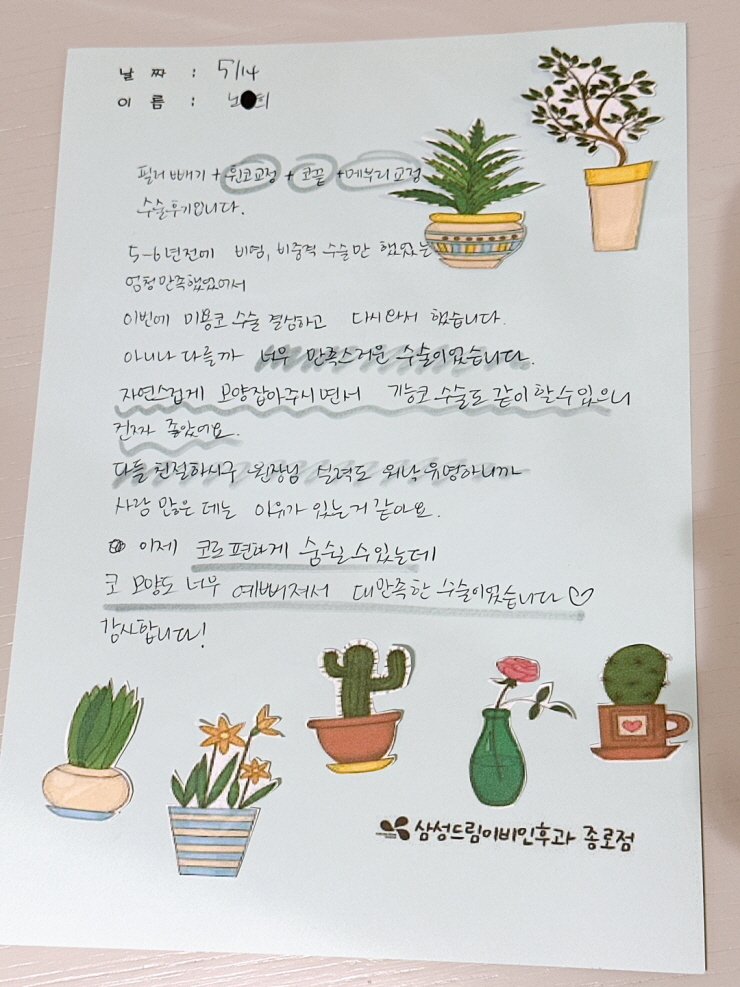 날 짜 : 5/14
이 름 : 노 희
필러 빼기 + 휜코교정 + 코끝 + 메부리 교정
수술후기입니다.
5-6년전에 비염, 비중격 수술만 했었는
엄청만족했었어서
이번에 미용코 수술 결심하고 다시와서 했습니다.
아니나 다를까 너무 만족스러운 수술이었습니다.
자연스럽게 모양잡아주시면서 기능코 수술도 같이 할 수 있으니
진짜 좋았어요.
다들 친절하시구 원장님 실력도 워낙 유명하니까
사람 많은 데는 이유가 있는거 같아요.
이제 코로 편하게 숨쉴 수 있는데
코 모양도 너무 예뻐져서 대만족한 수술이었습니다 ♡
감사합니다!
삼성드림이비인후과 종로점